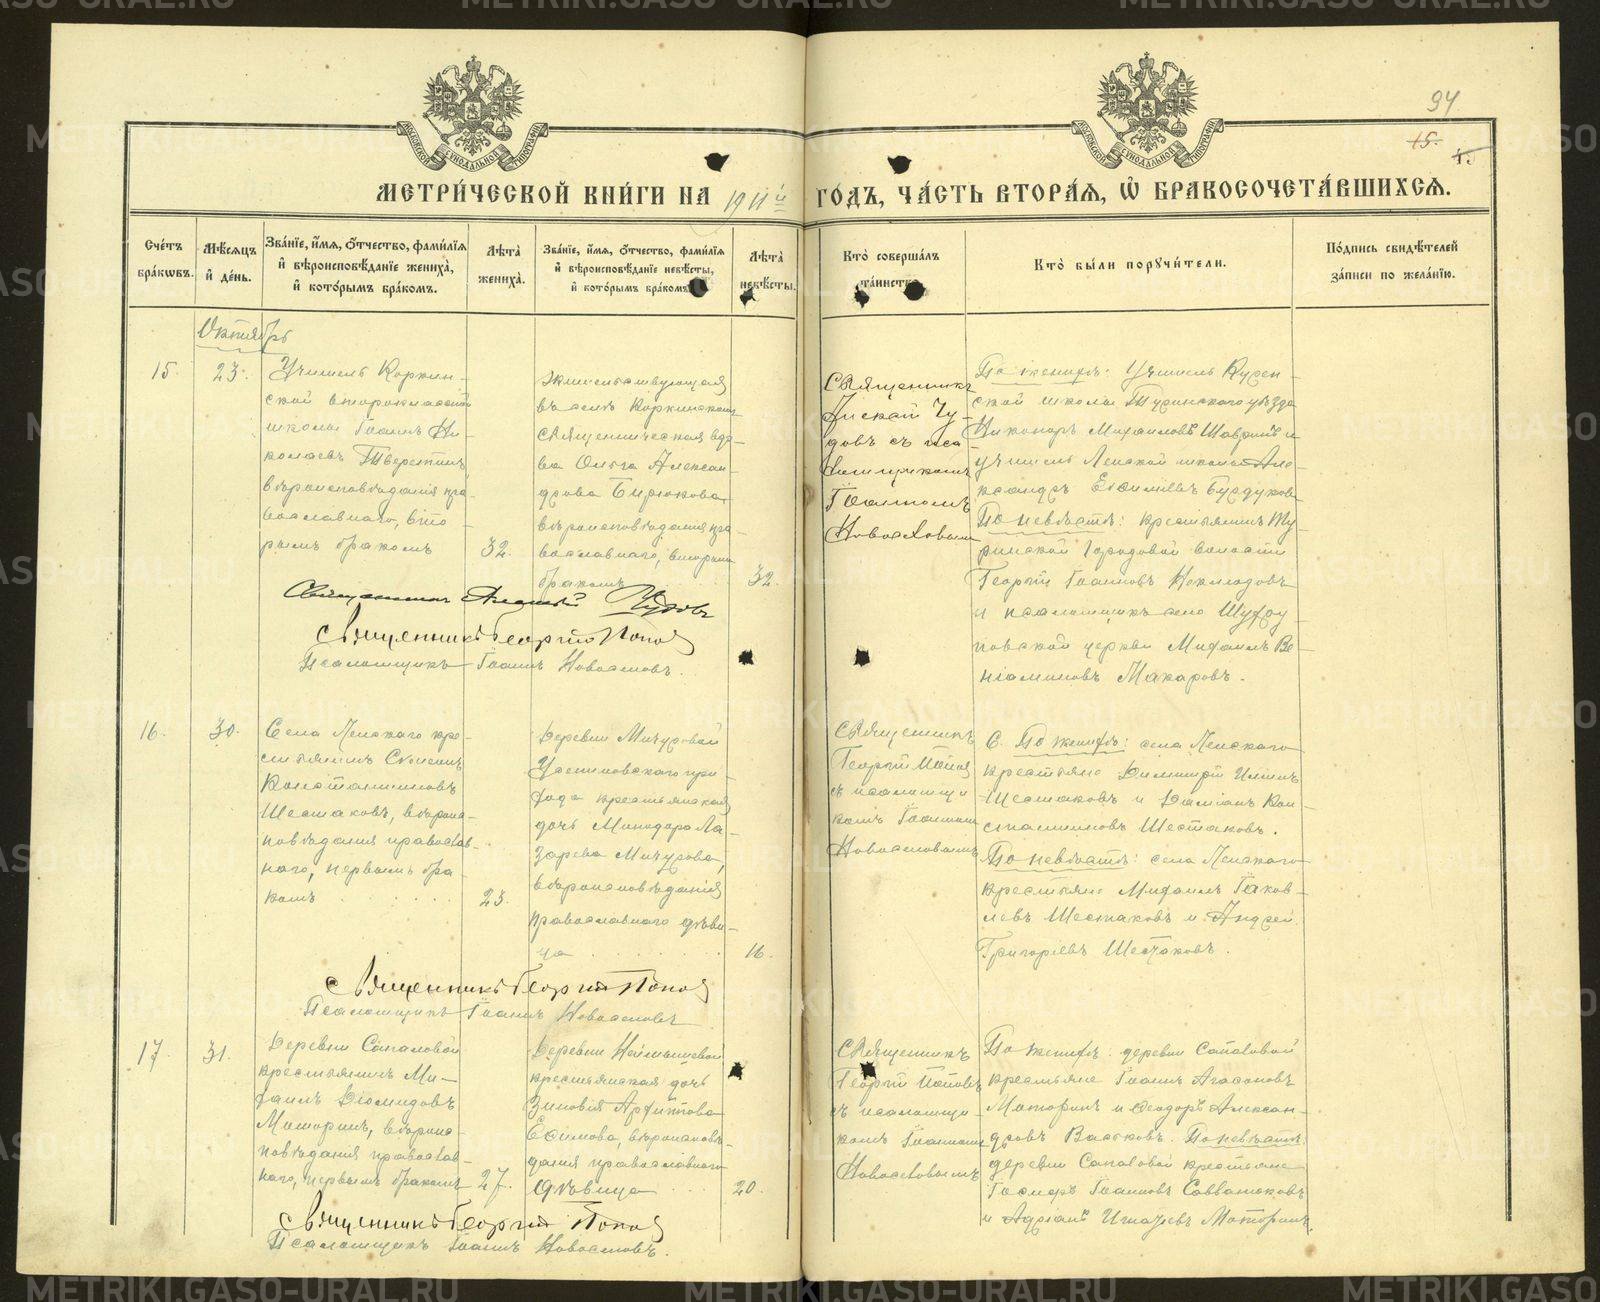 94
15.
МЕТРИ́ЧЕСКОЙ КНИ́ГИ НА 1911 й ГО́ДЪ, ЧА́СТЬ ВТОРА́Я, Ѽ БРАКОСОЧЕТА́ВШИХСЯ.
Сче́тъ бра́кѡвъ.
Мѣ́сяцъ и҆ де́нь.
Зва́нїе, и҆́мя, ѻ҆́тчество, фами́лїя
и҆ вѣроисповѣ́данїе жениха̀,
и҆ кото́рымъ бра́комъ.
Лѣ́та жениха̀.
Зва́нїе, и҆́мя, ѻ҆́тчество, фами́лїя
и҆ вѣроисповѣ́данїе невѣ́сты,
и҆ кото́рымъ бра́комъ.
Лѣ́та невѣ́сты.
Кто̀ соверша́лъ та́инство.
Кто̀ бы́ли порꙋчи́тели.
По́дпись свидѣ́телей
за́писи по жела́нїю.
Октябрь
15.
23.
Учитель Коркин-
ской второклассной
школы Іоаннъ Ни-
колаевъ Тверетинъ,
вѣроисповѣданія пра-
вославнаго, вто-
рымъ бракомъ
32.
жительствующая
въ селѣ Коркинскомъ
священническая вдо-
ва Ольга Алексан-
дрова Бирюкова,
вѣроисповѣданія пра-
вославнаго, вторымъ
бракомъ
32.
Священникъ
Чу-
довъ съ пса-
ломщикомъ
Іоанномъ
Новоселовымъ
По женихѣ: Учитель
ской школы Туринскаго уѣзда
Никоноръ Михаиловъ и
учитель Ленской школы Але-
ксандръ Бурдуковъ
По невѣстѣ: крестьянинъ Ту-
ринской Городовой волости
Георгій Іоанновъ
и псаломщикъ села
повской церкви Михаилъ Ве-
ніаминовъ Макаровъ.
Священникъ Чудовъ
Священникъ Георгій Поповъ
Псаломщикъ Іоаннъ Новоселовъ.
16.
30.
Села Ленскаго кре-
стьянинъ Симеонъ
Константиновъ
Шестаковъ, вѣроис-
повѣданія православ-
наго, первымъ бра-
комъ
23.
Деревни Мичуровой
Устиновскаго при-
хода крестьянская
дочь Минодора Ла-
зарева Мичурова,
вѣроисповѣданія
православнаго дѣви-
ца
16.
Священникъ
Георгій Поповъ
съ псаломщи
комъ Іоанномъ
Новоселовымъ
По женихѣ: села Ленскаго
крестьяне Димитрій Ильинъ
Шестаковъ и Даміанъ Кон-
стантиновъ Шестаковъ.
По невѣстѣ: села Ленскаго
крестьяне Михаилъ Іаков-
левъ Шестаковъ и Андрей
Григоріевъ Шестаковъ.
Священникъ Георгій Поповъ
Псаломщикъ Іоаннъ Новоселовъ
17.
31.
Деревни Сапаловой
крестьянинъ Ми-
хаилъ Діомидовъ
Маторинъ, вѣроис-
повѣданія православ-
наго, первымъ бракомъ
27.
Деревни Неймышевой
крестьянская дочь
Зиновія Архиппова
Ефимова, вѣроисповѣ-
данія православнаго
дѣвица
20.
Священникъ
Георгій Поповъ
съ псаломщи-
комъ Іоанномъ
Новоселовымъ
По женихѣ: деревни Сапаловой
крестьяне Іоаннъ Агафоновъ
Маторинъ и Ѳеодоръ Алексан-
дровъ Вастковъ. По невѣстѣ:
деревни Сапаловой крестьяне
Іоанновъ Савватюковъ
и Адріанъ Игнатьевъ Маторинъ
Священникъ Георгій Поповъ
Псаломщикъ Іоаннъ Новоселовъ.
METRIKI.GASO-URAL.RU